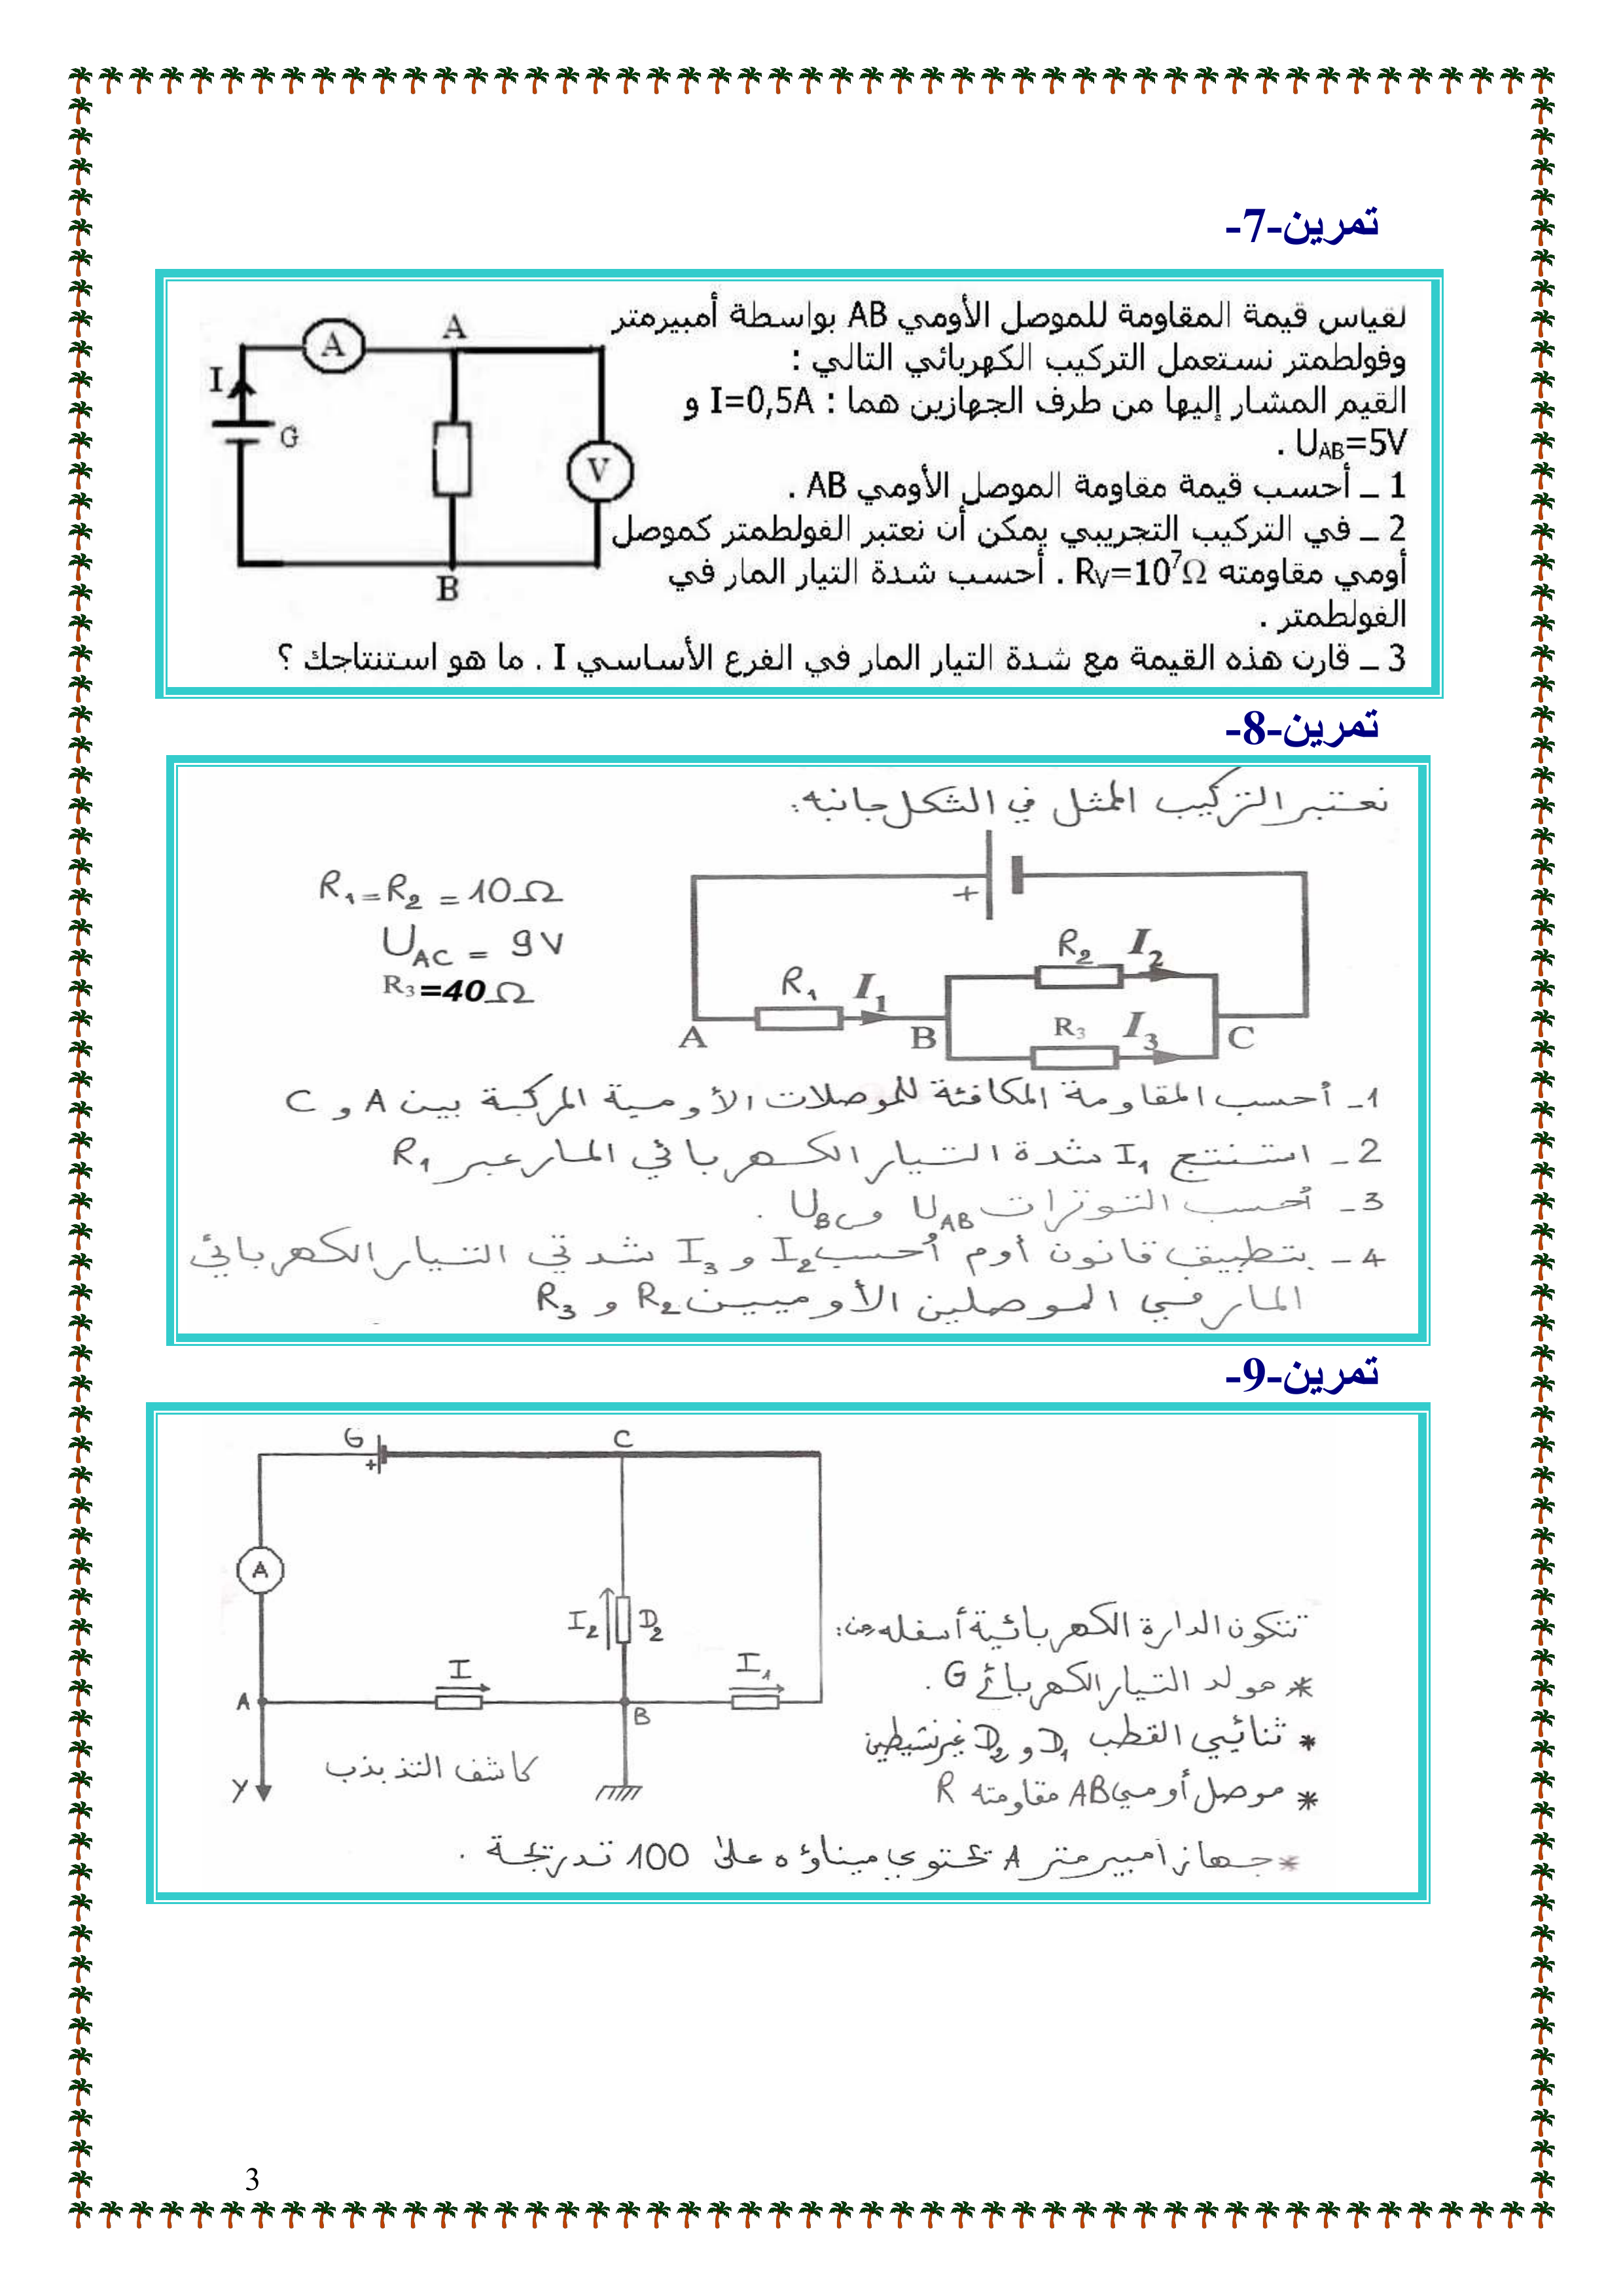 تمرين-7-
لقياس قيمة المقاومة للموصل الأومي AB بواسطة أمبيرمتر
وفولطمتر نستعمل التركيب الكهربائي التالي :
القيم المشار إليها من طرف الجهازين هما : I=0,5A و
U_AB=5V .
1 ــ أحسب قيمة مقاومة الموصل الأومي AB .
2 ــ في التركيب التجريبي يمكن أن نعتبر الفولطمتر كموصل
أومي مقاومته R_V=10⁷Ω . أحسب شدة التيار المار في
الفولطمتر .
3 ــ قارن هذه القيمة مع شدة التيار المار في الفرع الأساسي I . ما هو استنتاجك ؟
A
A
I
G
V
B
تمرين-8-
نعتبر التركيب الممثل في الشكل جانبه:
R₁=R₂=10Ω
U_AC = 9V
R₃=40Ω
+
R₂ I₂
R₁ I₁
R₃ I₃
A B C
1- أحسب المقاومة المكافئة للموصلات الأومية المركبة بين A و C
2- استنتج I₁ شدة التيار الكهربائي المار عبر R₁
3- أحسب التوترات U_AB و U_BC .
4- بتطبيق قانون أوم أحسب I₂ و I₃ شدتي التيار الكهربائي
المار في الموصلين الأوميين R₂ و R₃
تمرين-9-
G C
+
A
I₂ D₂
I I₁
A B
Y
كاشف التذبذب
تتكون الدارة الكهربائية أسفله من:
* مولد التيار الكهربائي G .
* ثنائيي القطب D₁ و D₂ غير نشيطين
* موصل أومي AB مقاومته R
* جهاز أمبيرمتر A تحتوي ميناؤه على 100 تدريجة .
3